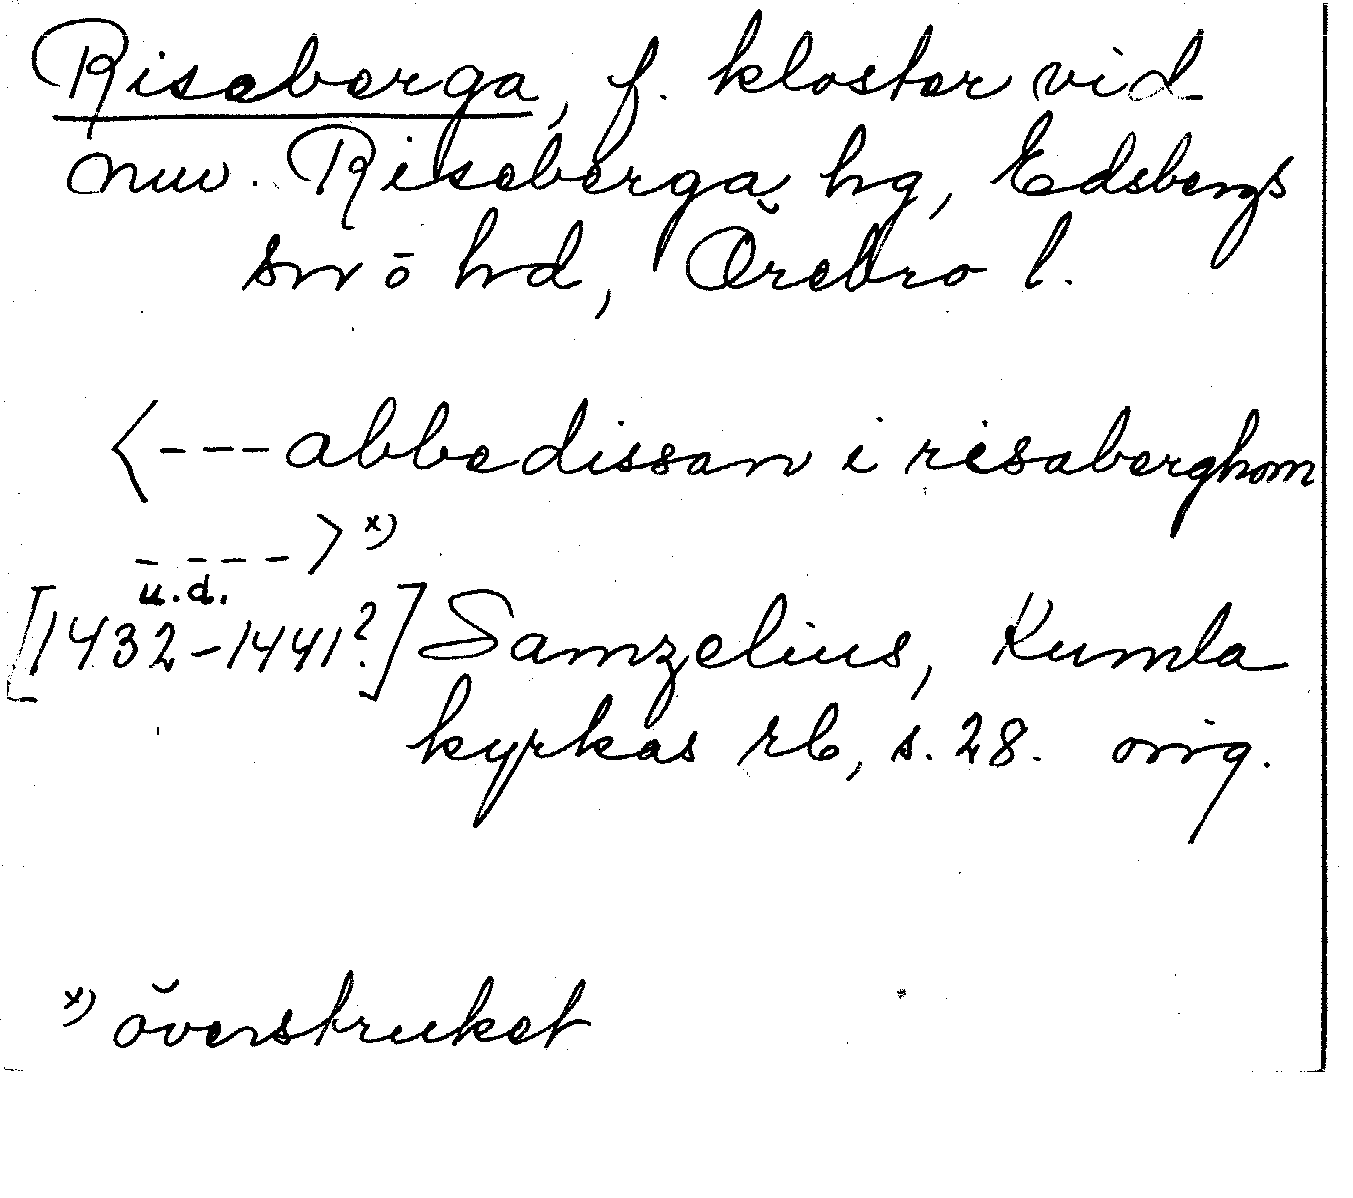 Riseberga, f. kloster vid
nuv. Riseberga hg, Edsbergs
sn o hd, Örebro l.
<---abbedissan i risaberghom
---->x)
u.d.
[1432-1441?] Samzelius, Kumla
kyrkas rb, s. 28. orig.
x) överstruket